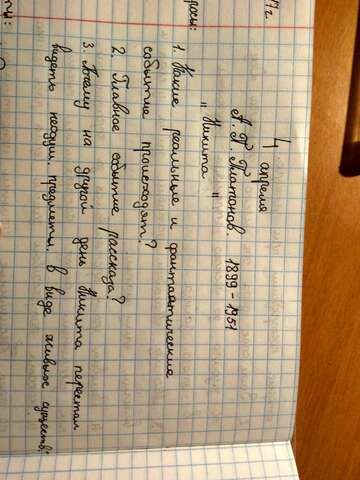 4 апреля
А. П. Платонов. 1899 - 1951
"Никита"
1. Какие реальные и фантастические
событие происходят?
2. Главное событие рассказа?
3. Почему на другой день Никита перестал
видеть неодуш. предметы в виде живых существ?